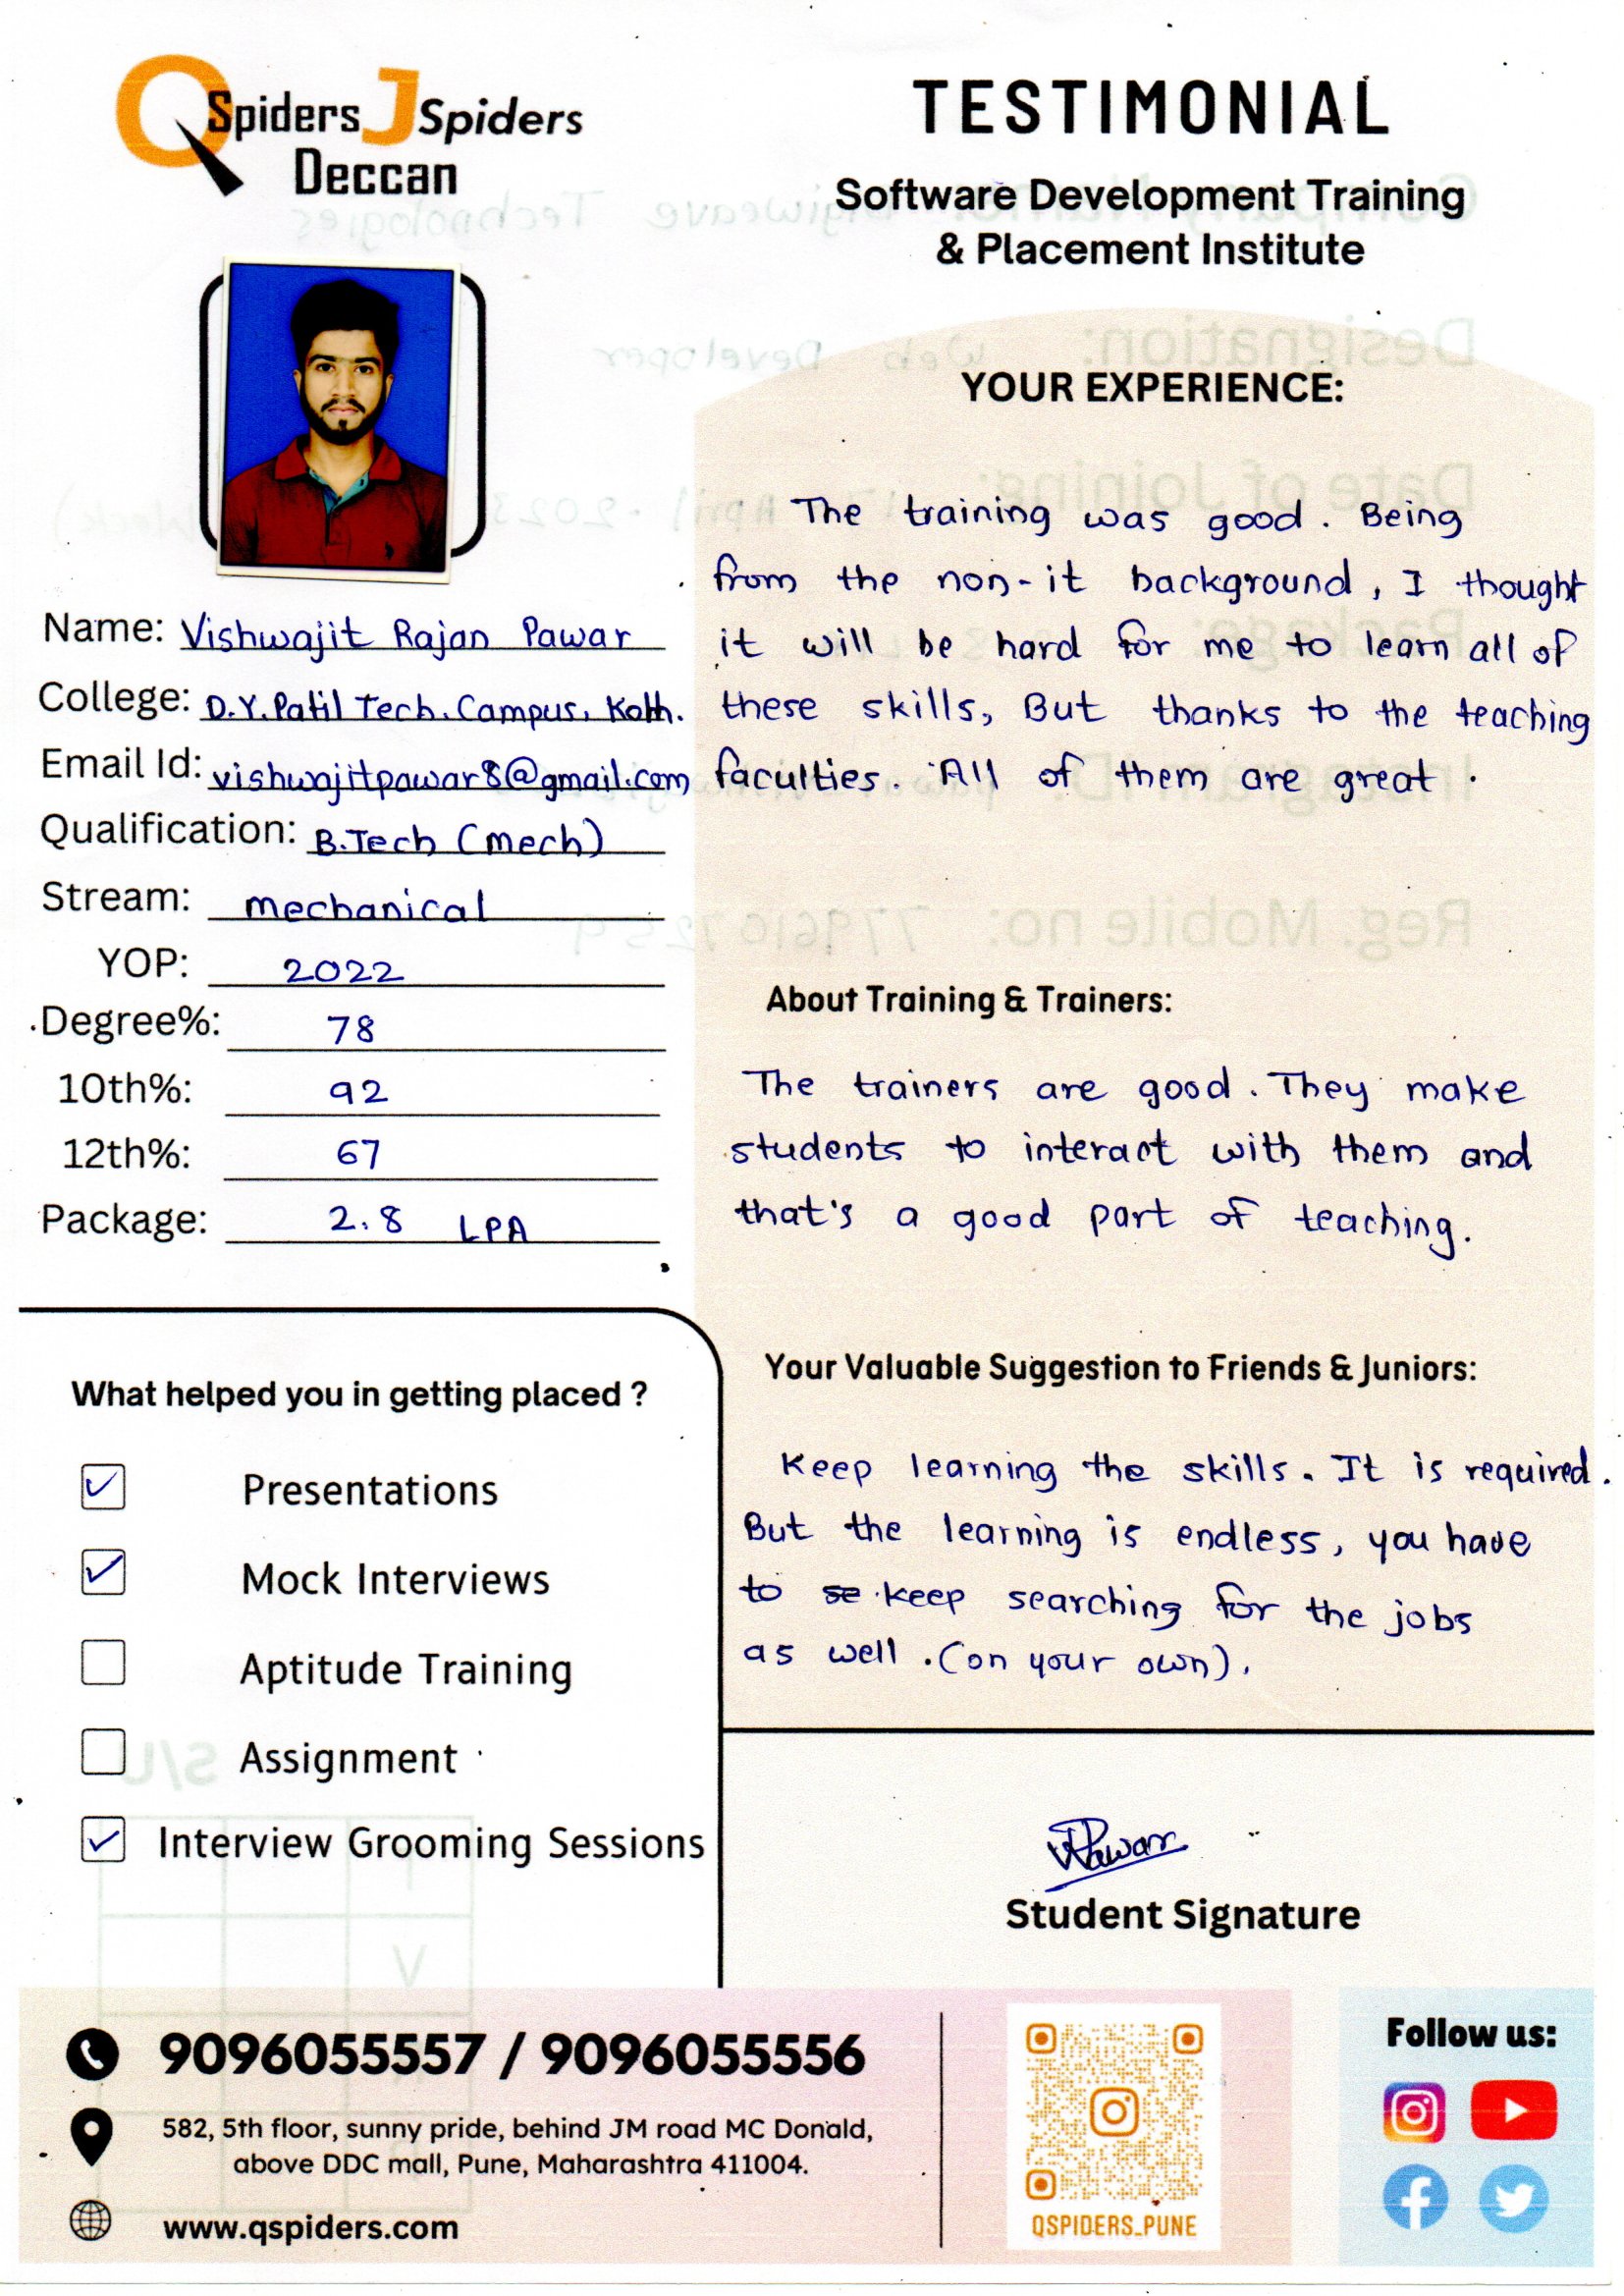 QSpiders JSpiders
Deccan
TESTIMONIAL
Software Development Training
& Placement Institute
Name: Vishwajit Rajan Pawar
College: D.Y. Patil Tech. Campus, Kolh.
Email Id: vishwajitpawar8@gmail.com
Qualification: B.Tech (Mech)
Stream: mechanical
YOP: 2022
Degree%: 78
10th%: 92
12th%: 67
Package: 2.8 LPA
YOUR EXPERIENCE:
The training was good. Being
from the non-it background, I thought
it will be hard for me to learn all of
these skills, But thanks to the teaching
faculties. All of them are great.
About Training & Trainers:
The trainers are good. They make
students to interact with them and
that's a good part of teaching.
Your Valuable Suggestion to Friends & Juniors:
Keep learning the skills. It is required.
But the learning is endless, you have
to se keep searching for the jobs
as well. (on your own).
What helped you in getting placed ?
Presentations
Mock Interviews
Aptitude Training
Assignment
Interview Grooming Sessions
VRPawar
Student Signature
9096055557 / 9096055556
582, 5th floor, sunny pride, behind JM road MC Donald,
above DDC mall, Pune, Maharashtra 411004.
www.qspiders.com
QSPIDERS_PUNE
Follow us: